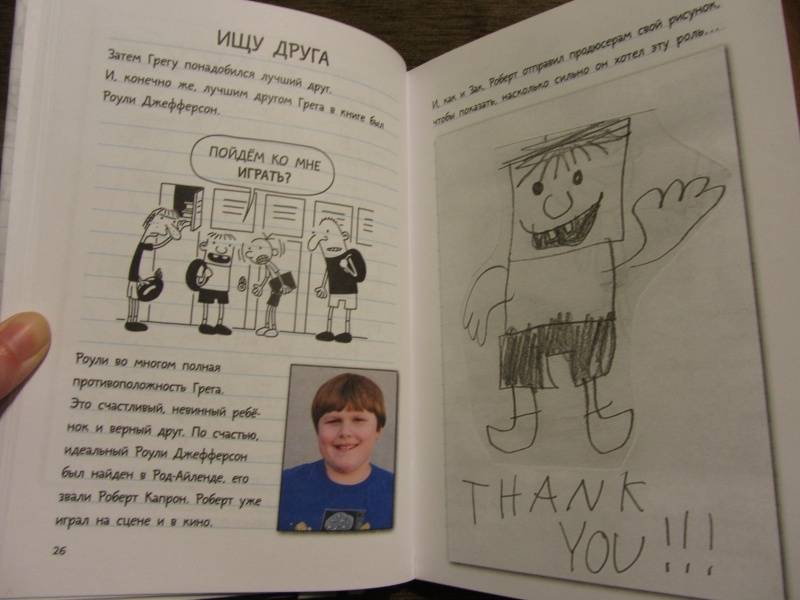 ИЩУ ДРУГА
Затем Грегу понадобился лучший друг.
И, конечно же, лучшим другом Грега в книге был
Роули Джефферсон.
ПОЙДЁМ КО МНЕ
ИГРАТЬ?
Роули во многом полная
противоположность Грега.
Это счастливый, невинный ребё-
нок и верный друг. По счастью,
идеальный Роули Джефферсон
был найден в Род-Айленде, его
звали Роберт Капрон. Роберт уже
играл на сцене и в кино.
26
И, как и Зак, Роберт отправил продюсерам свой рисунок,
чтобы показать, насколько сильно он хотел эту роль...
THANK
YOU!!!